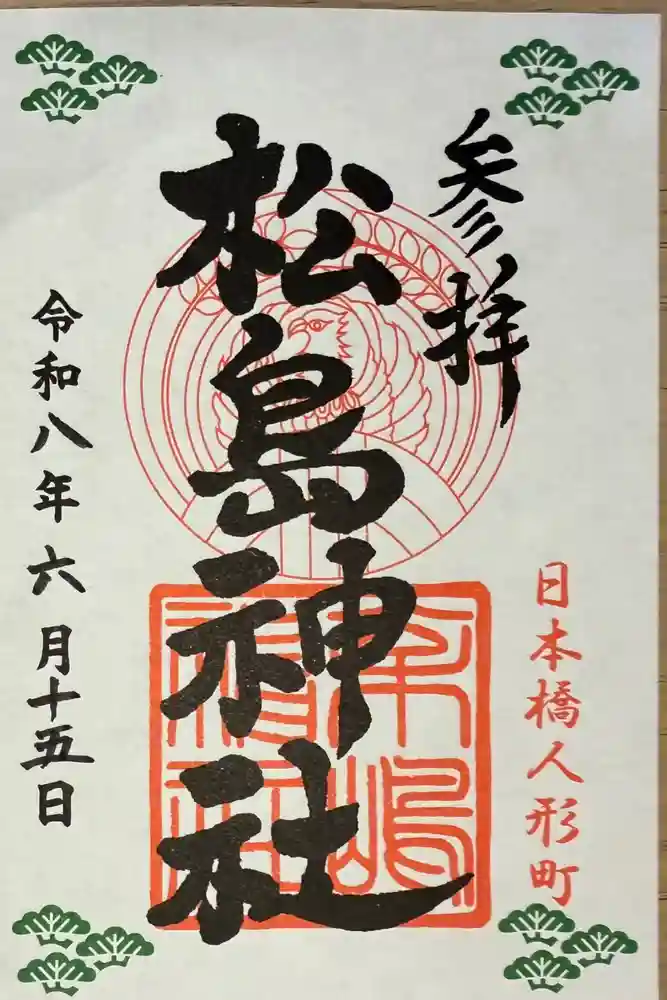 参拝
日本橋人形町
松島神社
令和八年六月十五日